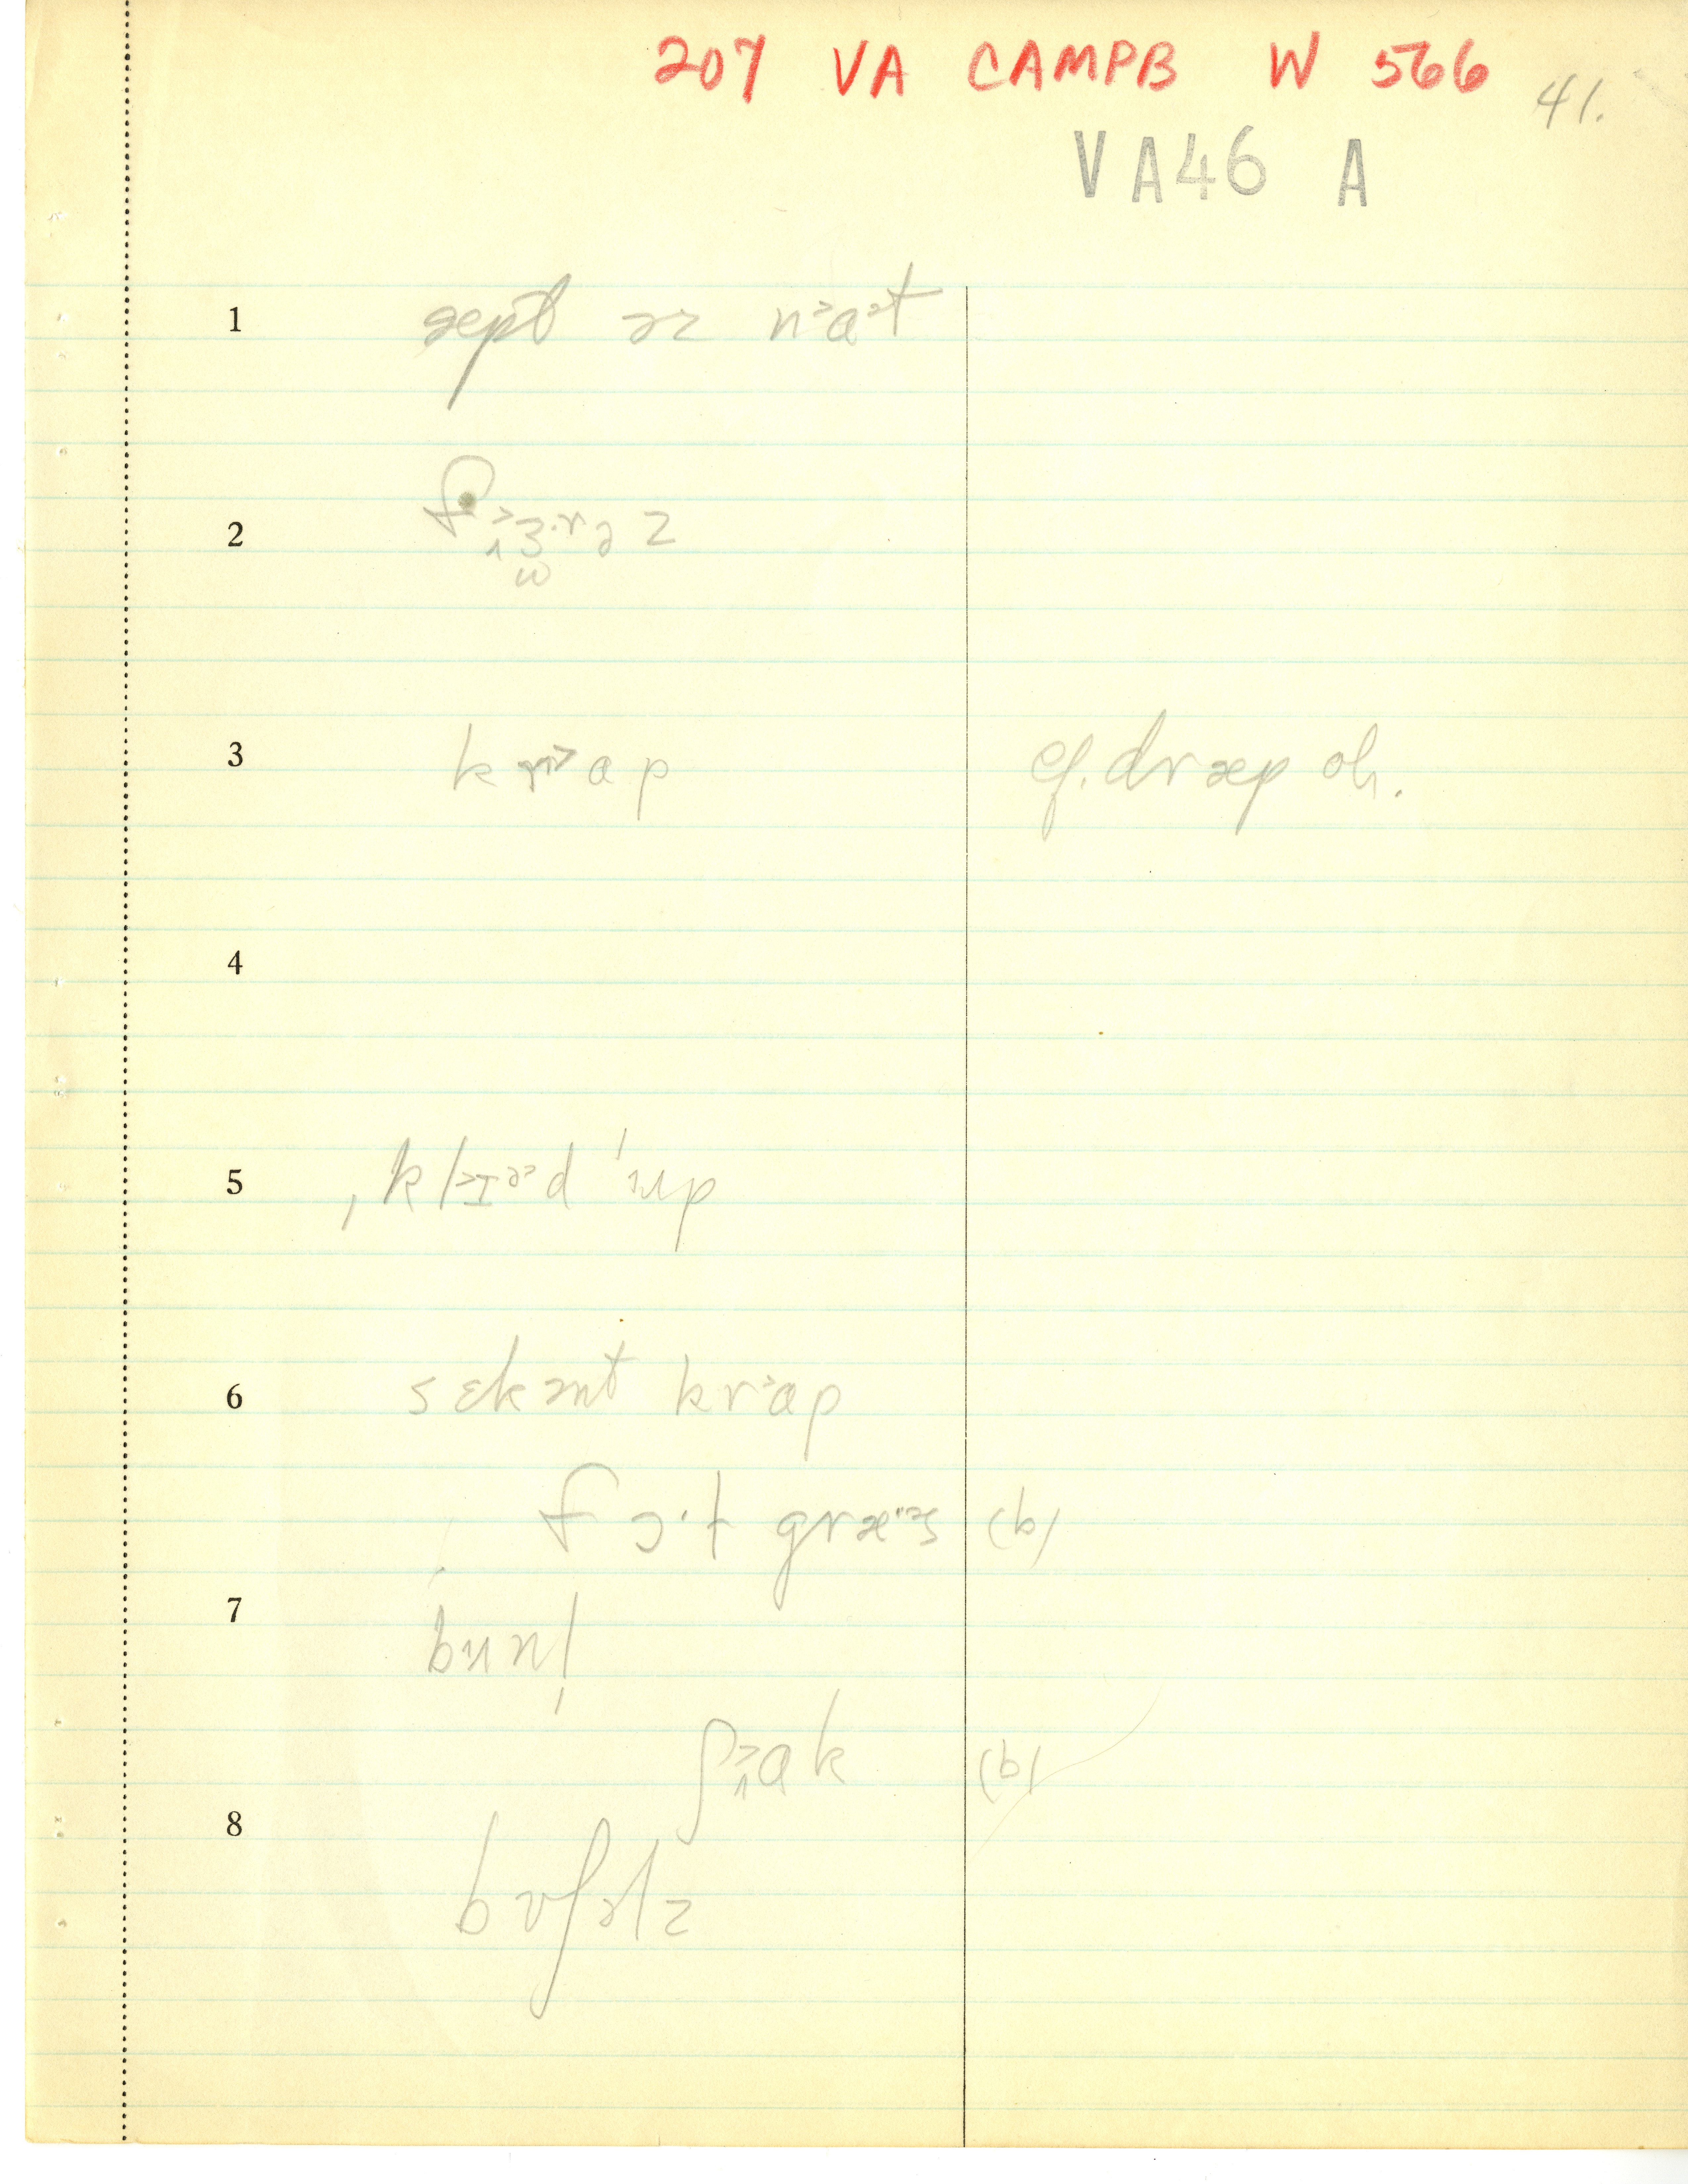 207 VA CAMPB W 566
41.
VA46 A
1 sept ər n˃a˃t
2
3 kr˃ap cf. dræp oh.
4
5 ˌkl˃ɪə˃d ˈʌp
6 sɛkənt kr˃ap
fɔˑt græˑ˃s (b)
7 bʌnl̩
ʃ˃ak (b)
8 bʌʃəlz